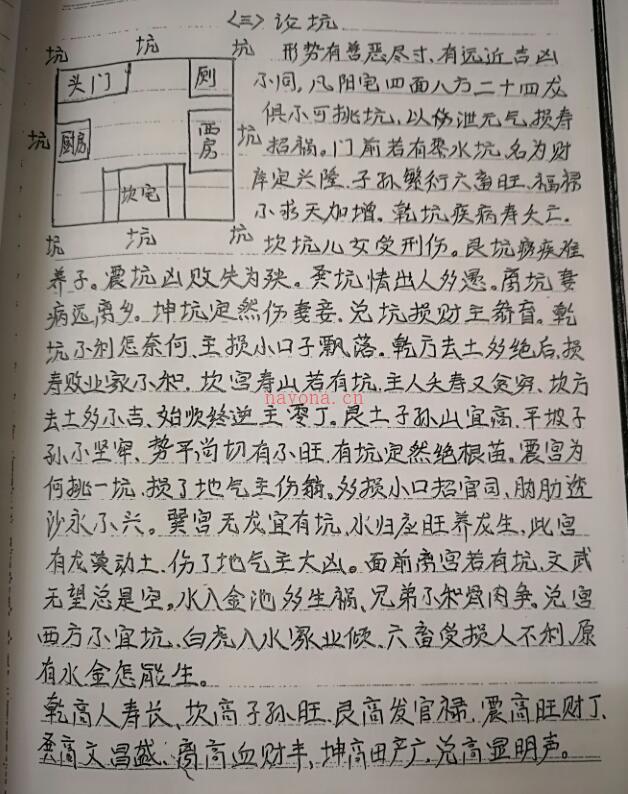 〈三〉论坑
坑 坑 坑
头门 厕
坑 厨房 西房 坑
坎宅
坑 坑 坑
形势有善恶尽寸、有远近吉凶
不同,凡阳宅四面八方二十四龙
俱不可挑坑,以伤泄元气,损寿
招祸。门前若有聚水坑,名为财
库定兴隆、子孙繁衍六畜旺、福禄
不求天加增。乾坑疾病寿夭亡、
坎坑儿女受刑伤。艮坑痨疾难
养子。震坑凶败失为殃。巽坑情出人多愚。离坑妻
病远离乡。坤坑定然伤妻妾、兑坑损财主 盲。乾
坑不利怎奈何、主损小口子飘落。乾方去土多绝后,损
寿败业家不和、坎宫寿山若有坑,主人夭寿又贫穷、坎方
去土多不吉、始顺终逆主零丁。艮土子孙山宜高,平坡子
孙不坚牢、势平尚切有小旺,有坑定然绝根苗。震宫为
何挑一坑、损了地气主伤 。多损小口招官司,肋肋
沙永不兴。巽宫无龙宜有坑、水归库旺养龙生,此宫
有龙莫动土、伤了地气主大凶。面前离宫若有坑、文武
无望总是空。水入金池多生祸、兄弟不和骨肉争。兑宫
西方不宜坑、白虎入水家业倾、六畜受损人不利、原
有水金怎能生。
乾高人寿长、坎高子孙旺、艮高发官禄、震高旺财丁、
巽高文昌盛、离高血财丰,坤高田产广、兑高显明声。
nayona.cn